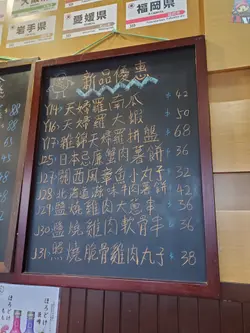 岩手県
愛媛県
福岡県
新品優惠
Y14 天婦羅南瓜 $42
Y16 天婦羅大蝦 $50
Y17 雜錦天婦羅拼盤 $68
J25 日本忌廉蟹肉薯餅 $36
J27 關西風章魚小丸子 $32
J28 北海道滋味牛肉薯餅 $42
J29 鹽燒雞肉大蔥串 $36
J30 鹽燒雞肉軟骨串 $36
J31 照燒脆骨雞肉丸子 $38
ほろよい